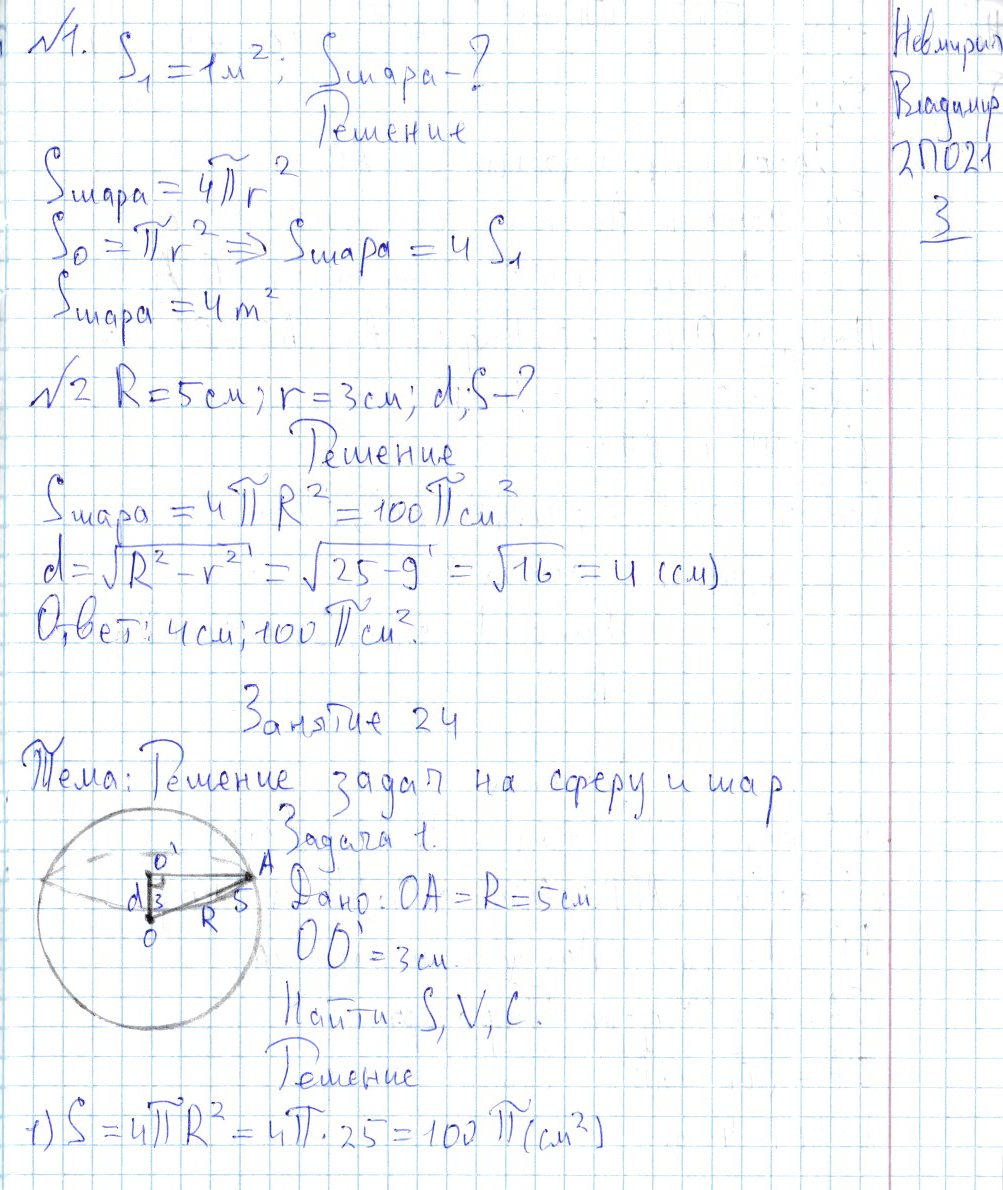 №1.
S₁ = 1м²; Sшара - ?
Решение
Sшара = 4πr²
S₀ = πr² => Sшара = 4 S₁
Sшара = 4 m²
№2 R = 5см; r = 3см; d; S - ?
Решение
Sшара = 4πR² = 100π см²
d = √(R² - r²) = √(25 - 9) = √16 = 4 (см)
Ответ: 4см; 100π см².
Занятие 24
Тема: Решение задач на сферу и шар
O' A
d 3 R 5
O
Задача 1.
Дано: OA = R = 5см
OO' = 3см.
Найти: S, V, C.
Решение
1) S = 4πR² = 4π · 25 = 100π (см²)
Владимир
2ПО21
3